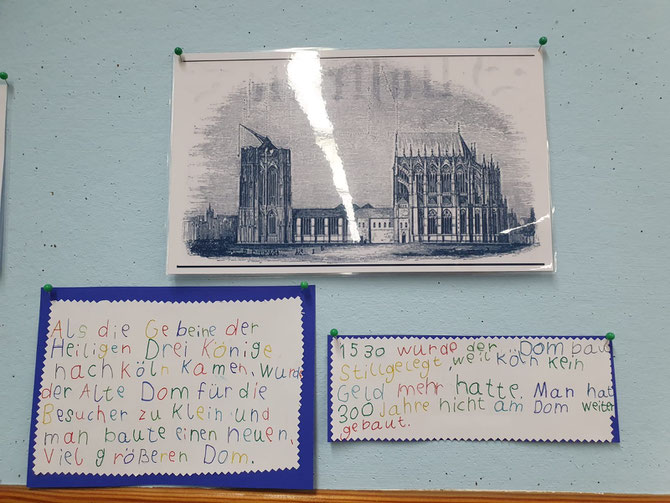 Als die Gebeine der
Heiligen Drei Könige
nach Köln kamen, wurde
der Alte Dom für die
Besucher zu klein und
man baute einen neuen,
viel größeren Dom.
1530 wurde der Dombau
Stillgelegt, weil Köln kein
Geld mehr hatte. Man hat
300 Jahre nicht am Dom weiter
gebaut.